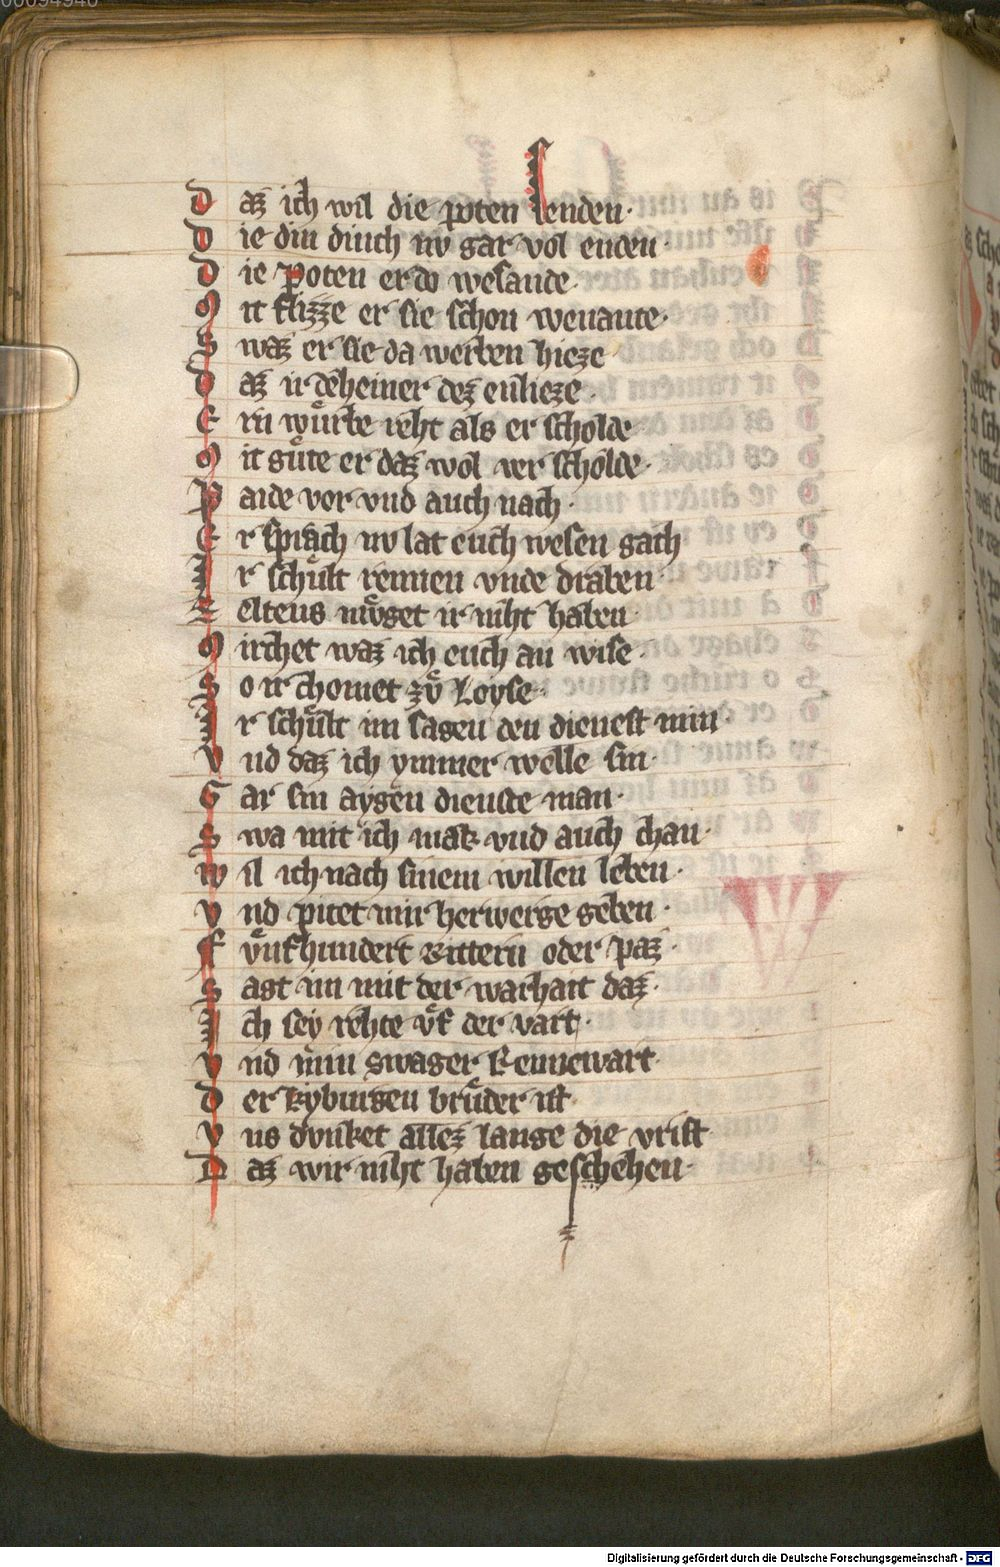 Daz ich wil die poten senden·
Die din dinch nv gar vol enden·
Die poten er do wesande·
Mit flizze er sie schon wenante·
Swaz er sie da werben hieze
Daz ir deheiner dez enlieze·
Ern wuͤrbe reht als er scholde
Mit guͤte er daz wol ver scholde·
Paide vor vnd auch nach·
Er sprach nv lat euch wesen gach
Ir schuͤlt rennen vnde draben
Zeltens muͦget ir niht haben
Mirchet waz ich euch an wise·
So ir chomet zvͦ Loyse·
Ir schuͤlt im sagen den dienest min
Vnd daz ich ymmer welle sin·
Gar sin aygen dienste man·
Swa mit ich mak vnd auch chan·
Wil ich nach sinem willen leben·
Vnd pitet mir herwerge geben·
Fvͤnfhundert Rittern oder paz·
Sagt im mit der warhait daz·
Ich sey rehte vͤf der vart·
Vnd min swager Rennewart·
Der kyburgen bruͤder ist·
Vns dvnket allez lange die vrist
Daz wir niht haben geschehen·
Digitalisierung gefördert durch die Deutsche Forschungsgemeinschaft - DFG